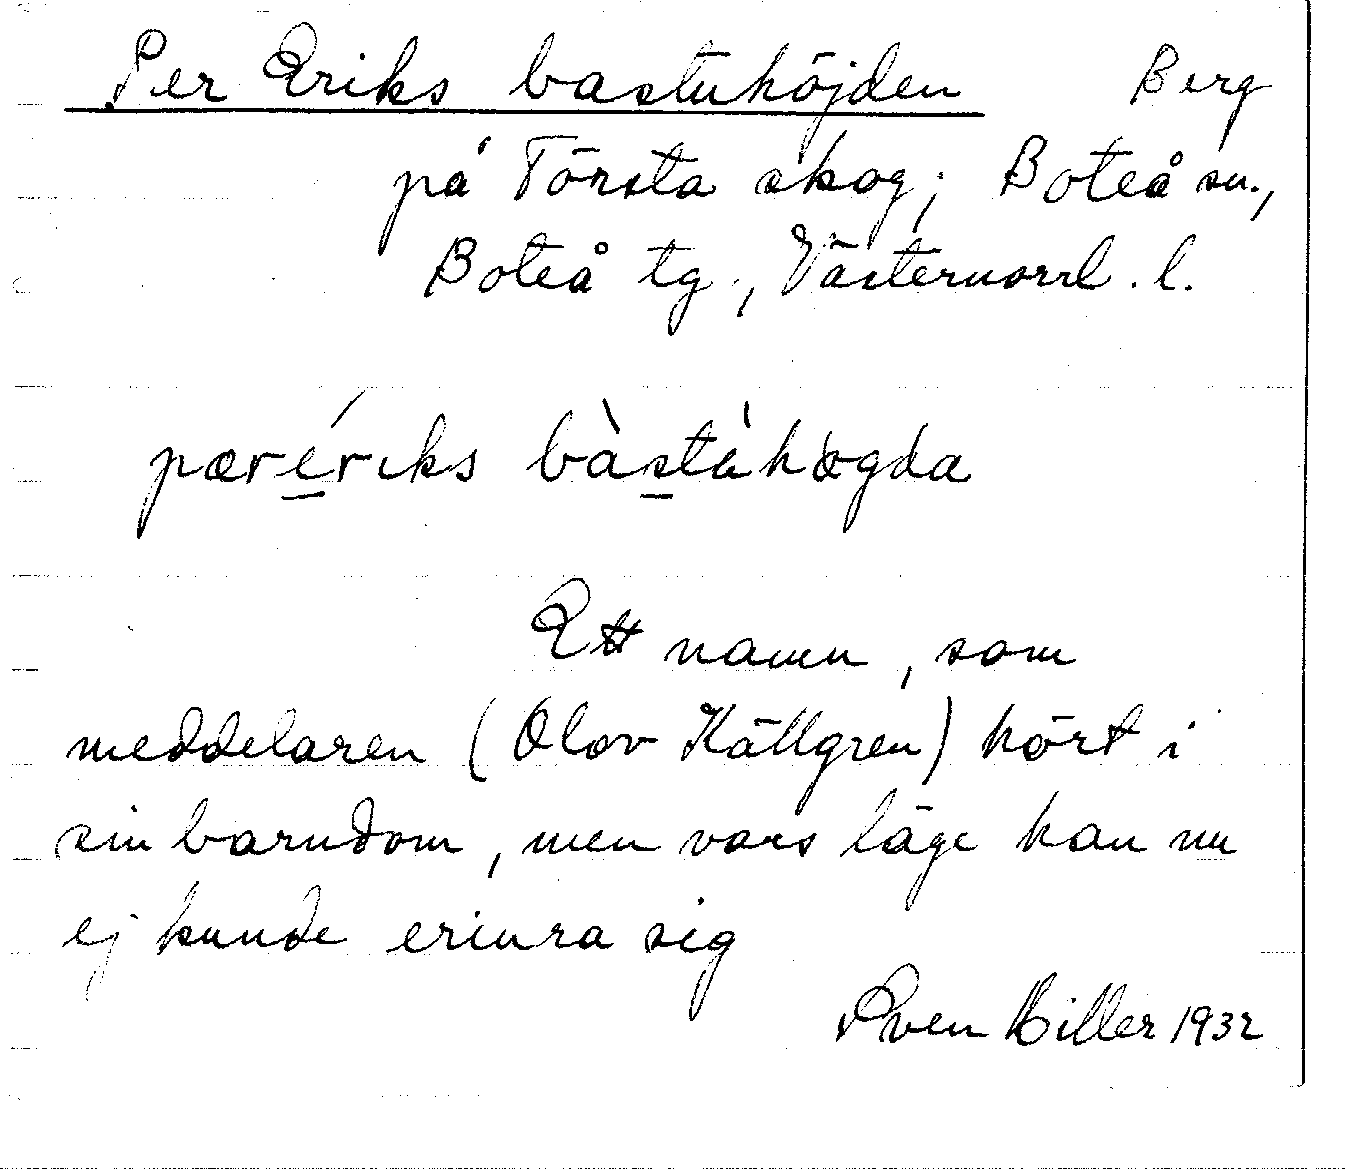 Per Eriks bastuhöjden Berg
på Törsta skog; Boteå sn.,
Boteå tg., Västernorrl. l.
pærériks bàstàhøgda
Ett namn, som
meddelaren (Olov Källgren) hört i
sin barndom, men vars läge han nu
ej kunde erinra sig
Sven Hiller 1932